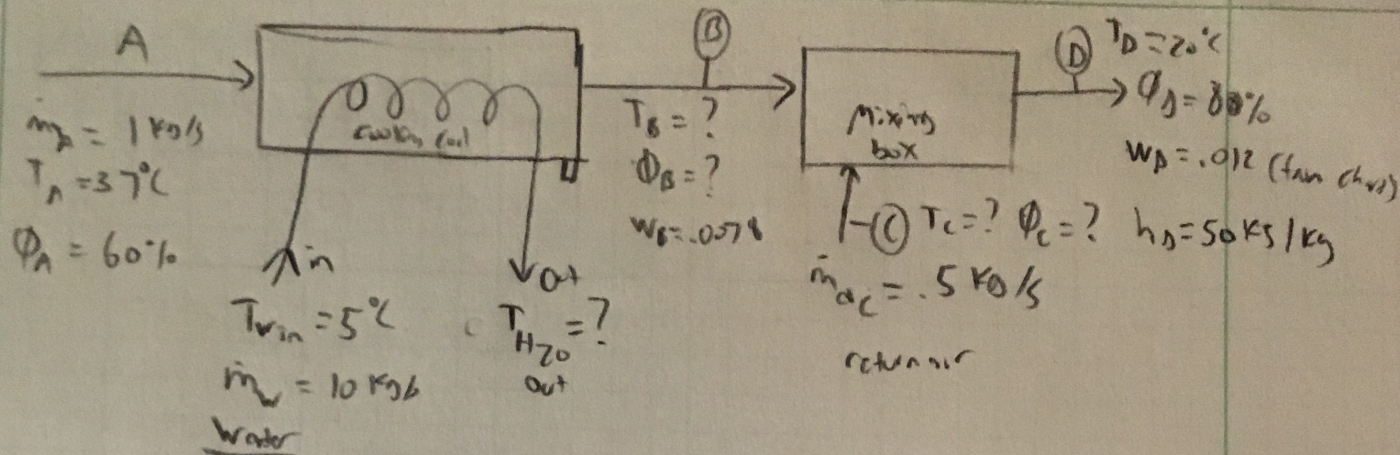 A
ṁₐ = 1 kg/s
T_A = 37°C
Φ_A = 60%
cooling coil
in
T_w in = 5°C
ṁ_w = 10 kg/s
Water
out
T_H2O out = ?
B
T_B = ?
Φ_B = ?
W_B = .0078
Mixing
box
C T_C = ? Φ_C = ?
ṁ_aC = .5 kg/s
return air
D T_D = 20°C
Φ_D = 80%
W_D = .012 (from chart)
h_D = 50 kJ/kg